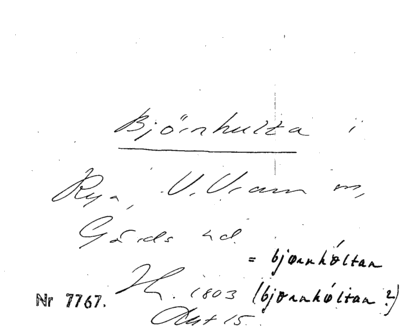 Björnhulta i
Rya, V. Vram m,
Gärds hd.
= bjørnhóltan
Nr 7767. 1803 (bjørnhóltan?)
15